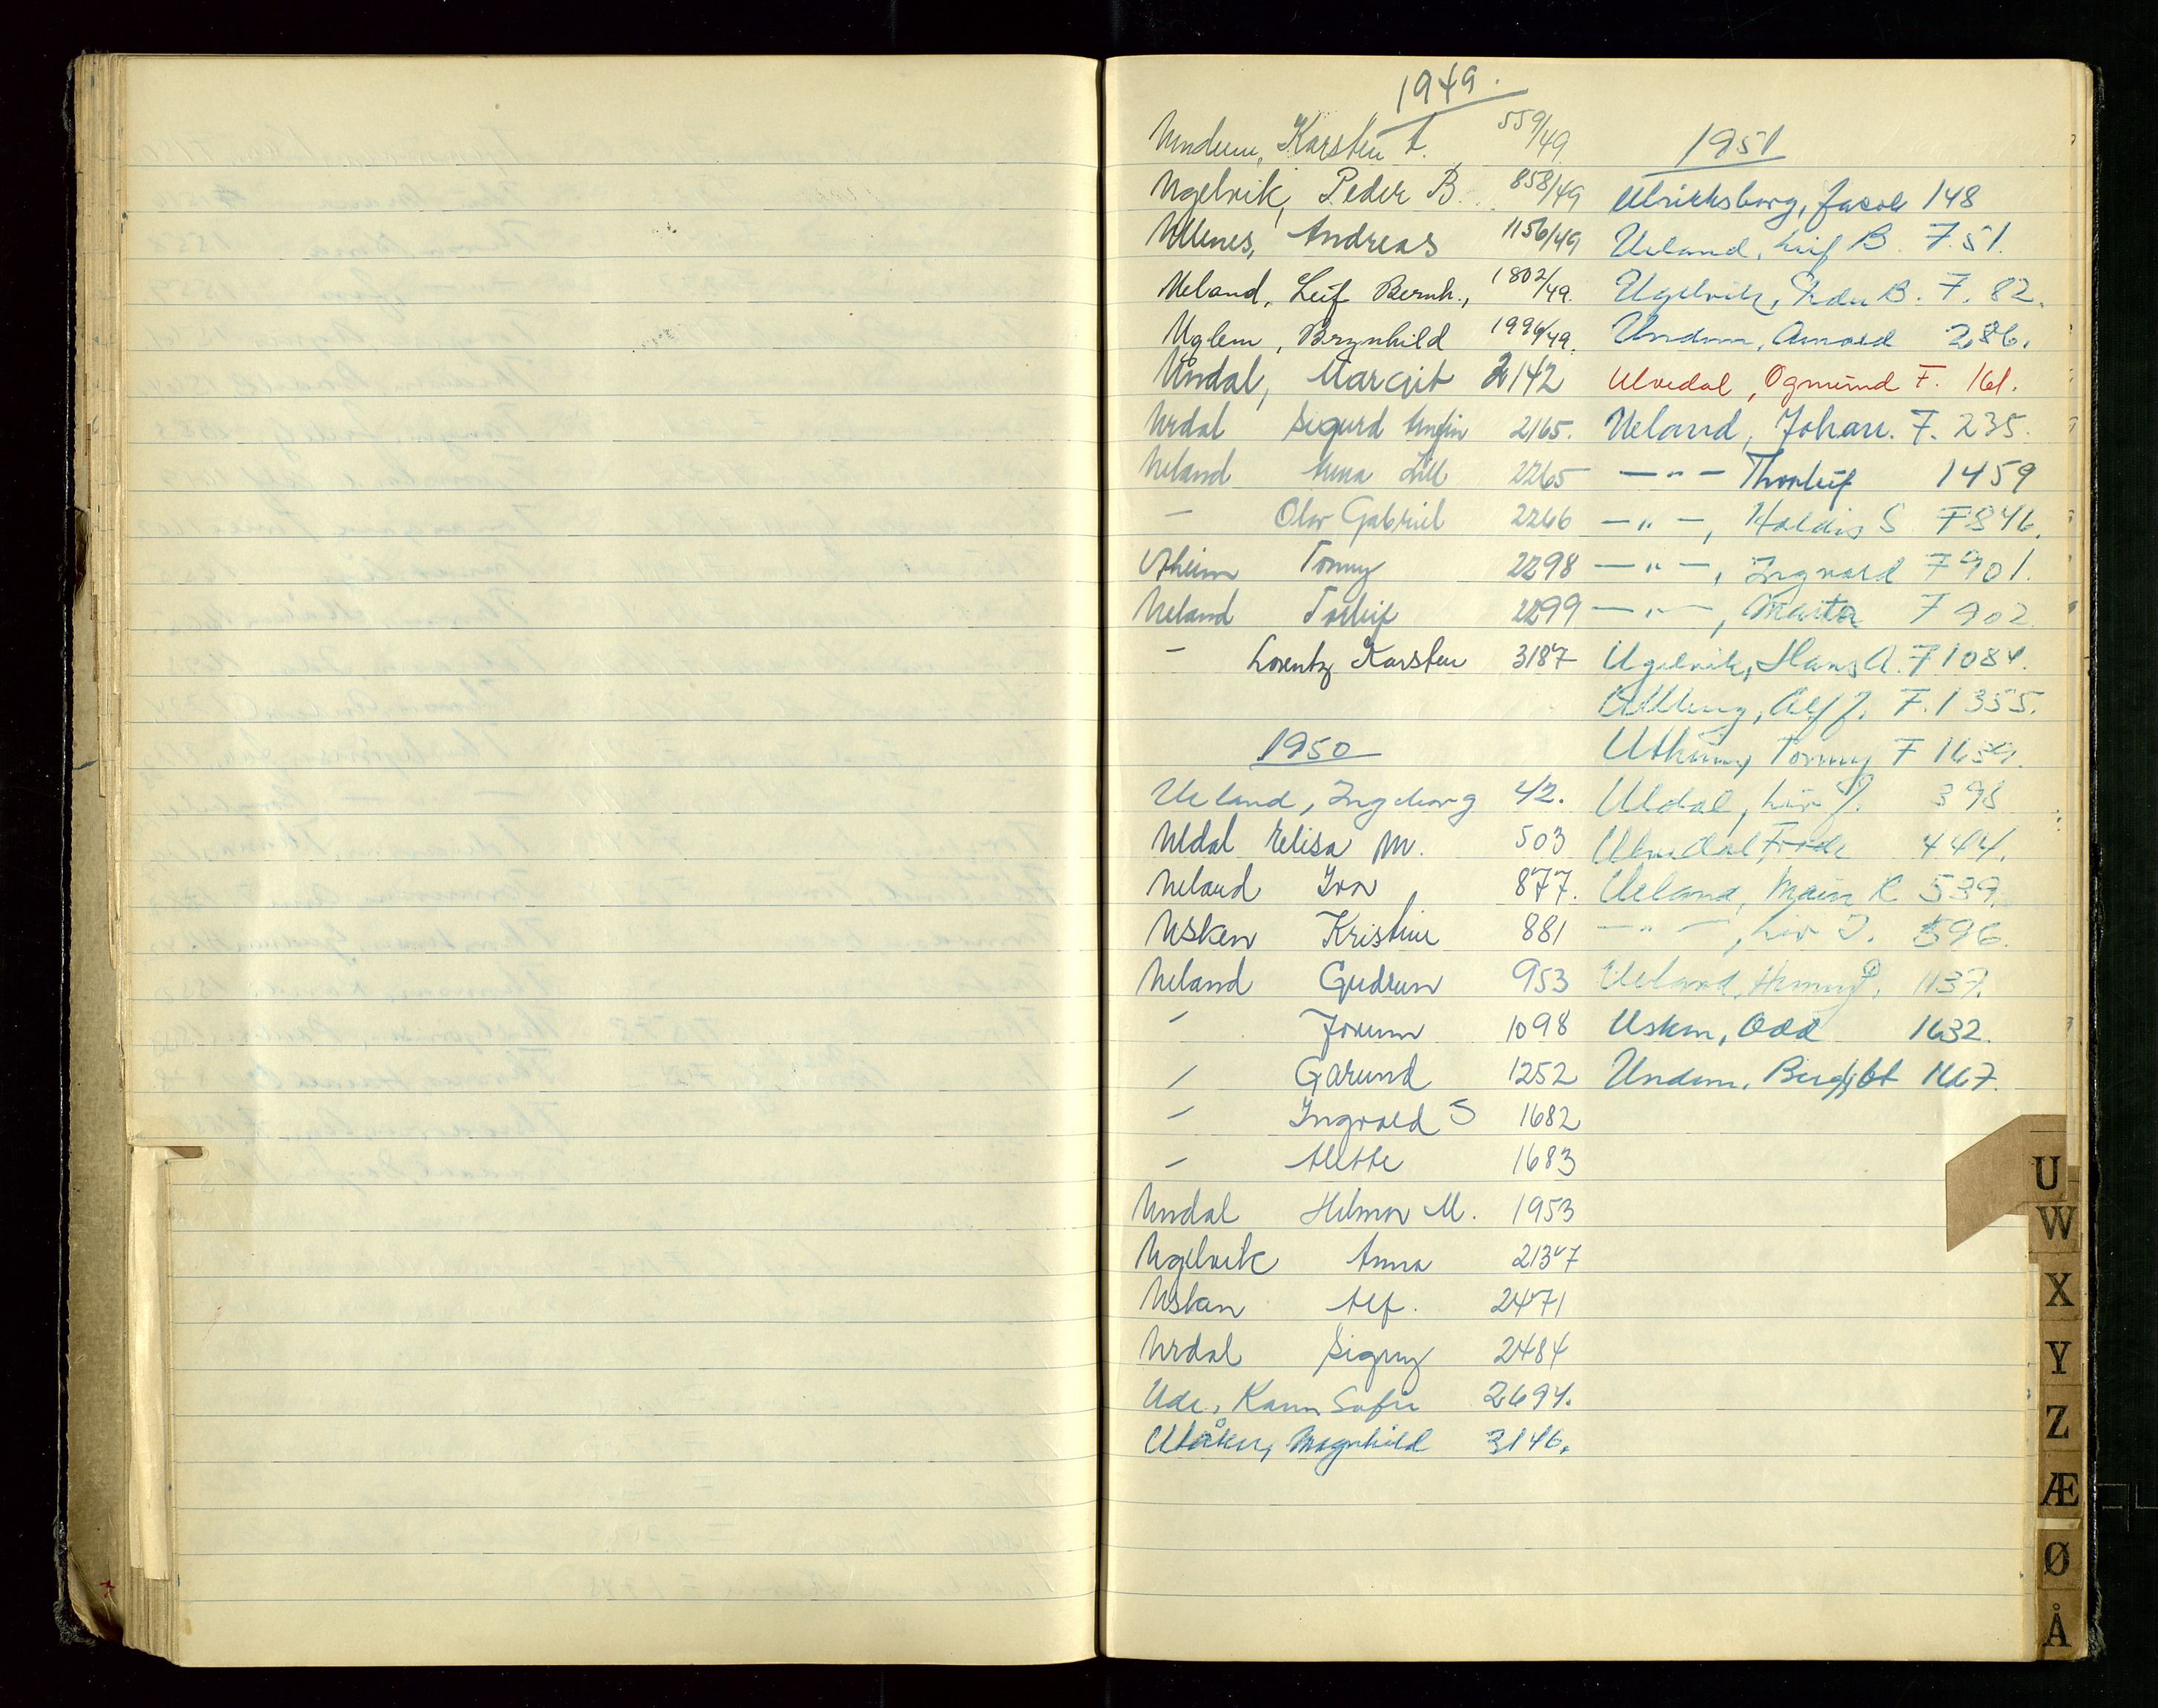 1949.
Undem, Karsten A. 559/49
Ugelvik, Peder B. 858/49
Ullenes, Andreas 1156/49
Ueland, Leif Bernh., 1802/49.
Uglem, Brynhild 1996/49.
Undal, Margit 2142
Urdal Sigurd 2165.
Ueland Anna Lill 2265
— Olav Gabriel 2266
Utheim Tonny 2298
Ueland Torleif 2299
— Lorentz Karsten 3187
1950
Ueland, Ingeborg 42.
Uldal Elisa M. 503
Ueland Ivar 877.
Usken Kristine 881
Ueland Gudrun 953
" Jorunn 1098
" Gärund 1252
" Ingvald S 1682
" Mette 1683
Undal Helmer M. 1953
Ugelvik Anna 2137
Usken Alf. 2471
Urdal Signy 2484
Ude, Karen Sofie 2694.
Ulåker, Magnhild 3146.
1951
Ulrichsborg, Jacob 148
Ueland, Leif B. F. 51.
Ugelvik, Peder B. F. 82.
Undem, Arnold 286.
Ulvedal, Ogmund F. 161.
Ueland, Johan. F. 235.
— " — Thorleif 1459
— " —, Haldis S. F 846.
— " —, Ingvald F 901.
— " —, Marta F 902
Ugelvik, Hans A. F 1084.
Ulleng, Alf J. F. 1355.
Utheim, Tonny F
Uldal, Liv J. 398
Ulvedal Frode 444.
Ueland, K 539.
— " —, Liv J. 596.
Ueland, Henny 1137.
Usken, Odd 1632.
Undem, Bergljot 1667.
U
W
X
Y
Z
Æ
Ø
Å